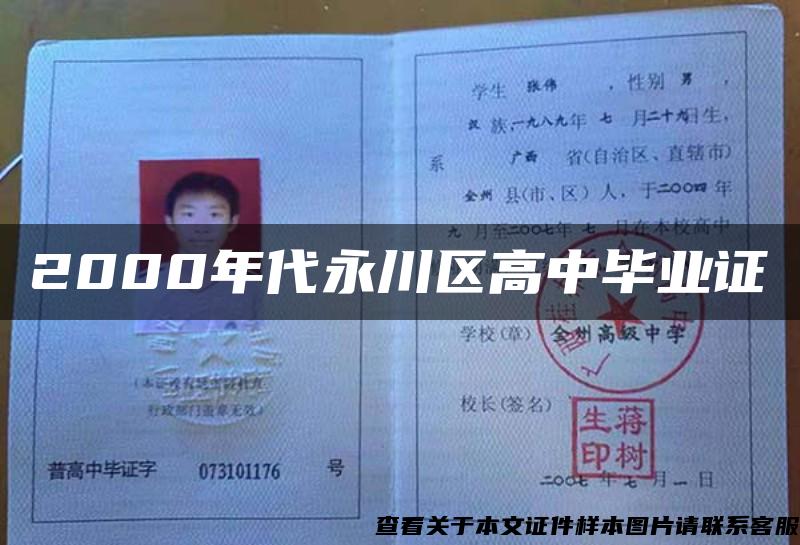 学生 张伟 ，性别 男 ，
汉 族，一九八九年 七 月二十九日生，
系 广西 省(自治区、直辖市)
全州 县(市、区）人，于二〇〇四年
九 月至二〇〇七年 七 月在本校高中
2000年代永川区高中毕业证
学校(章) 全州高级中学
校长(签名)
蒋树生印
二〇〇七 年 七 月 一 日
行政部门盖章无效)
普高中毕证字 073101176 号
查看关于本文证件样本图片请联系客服